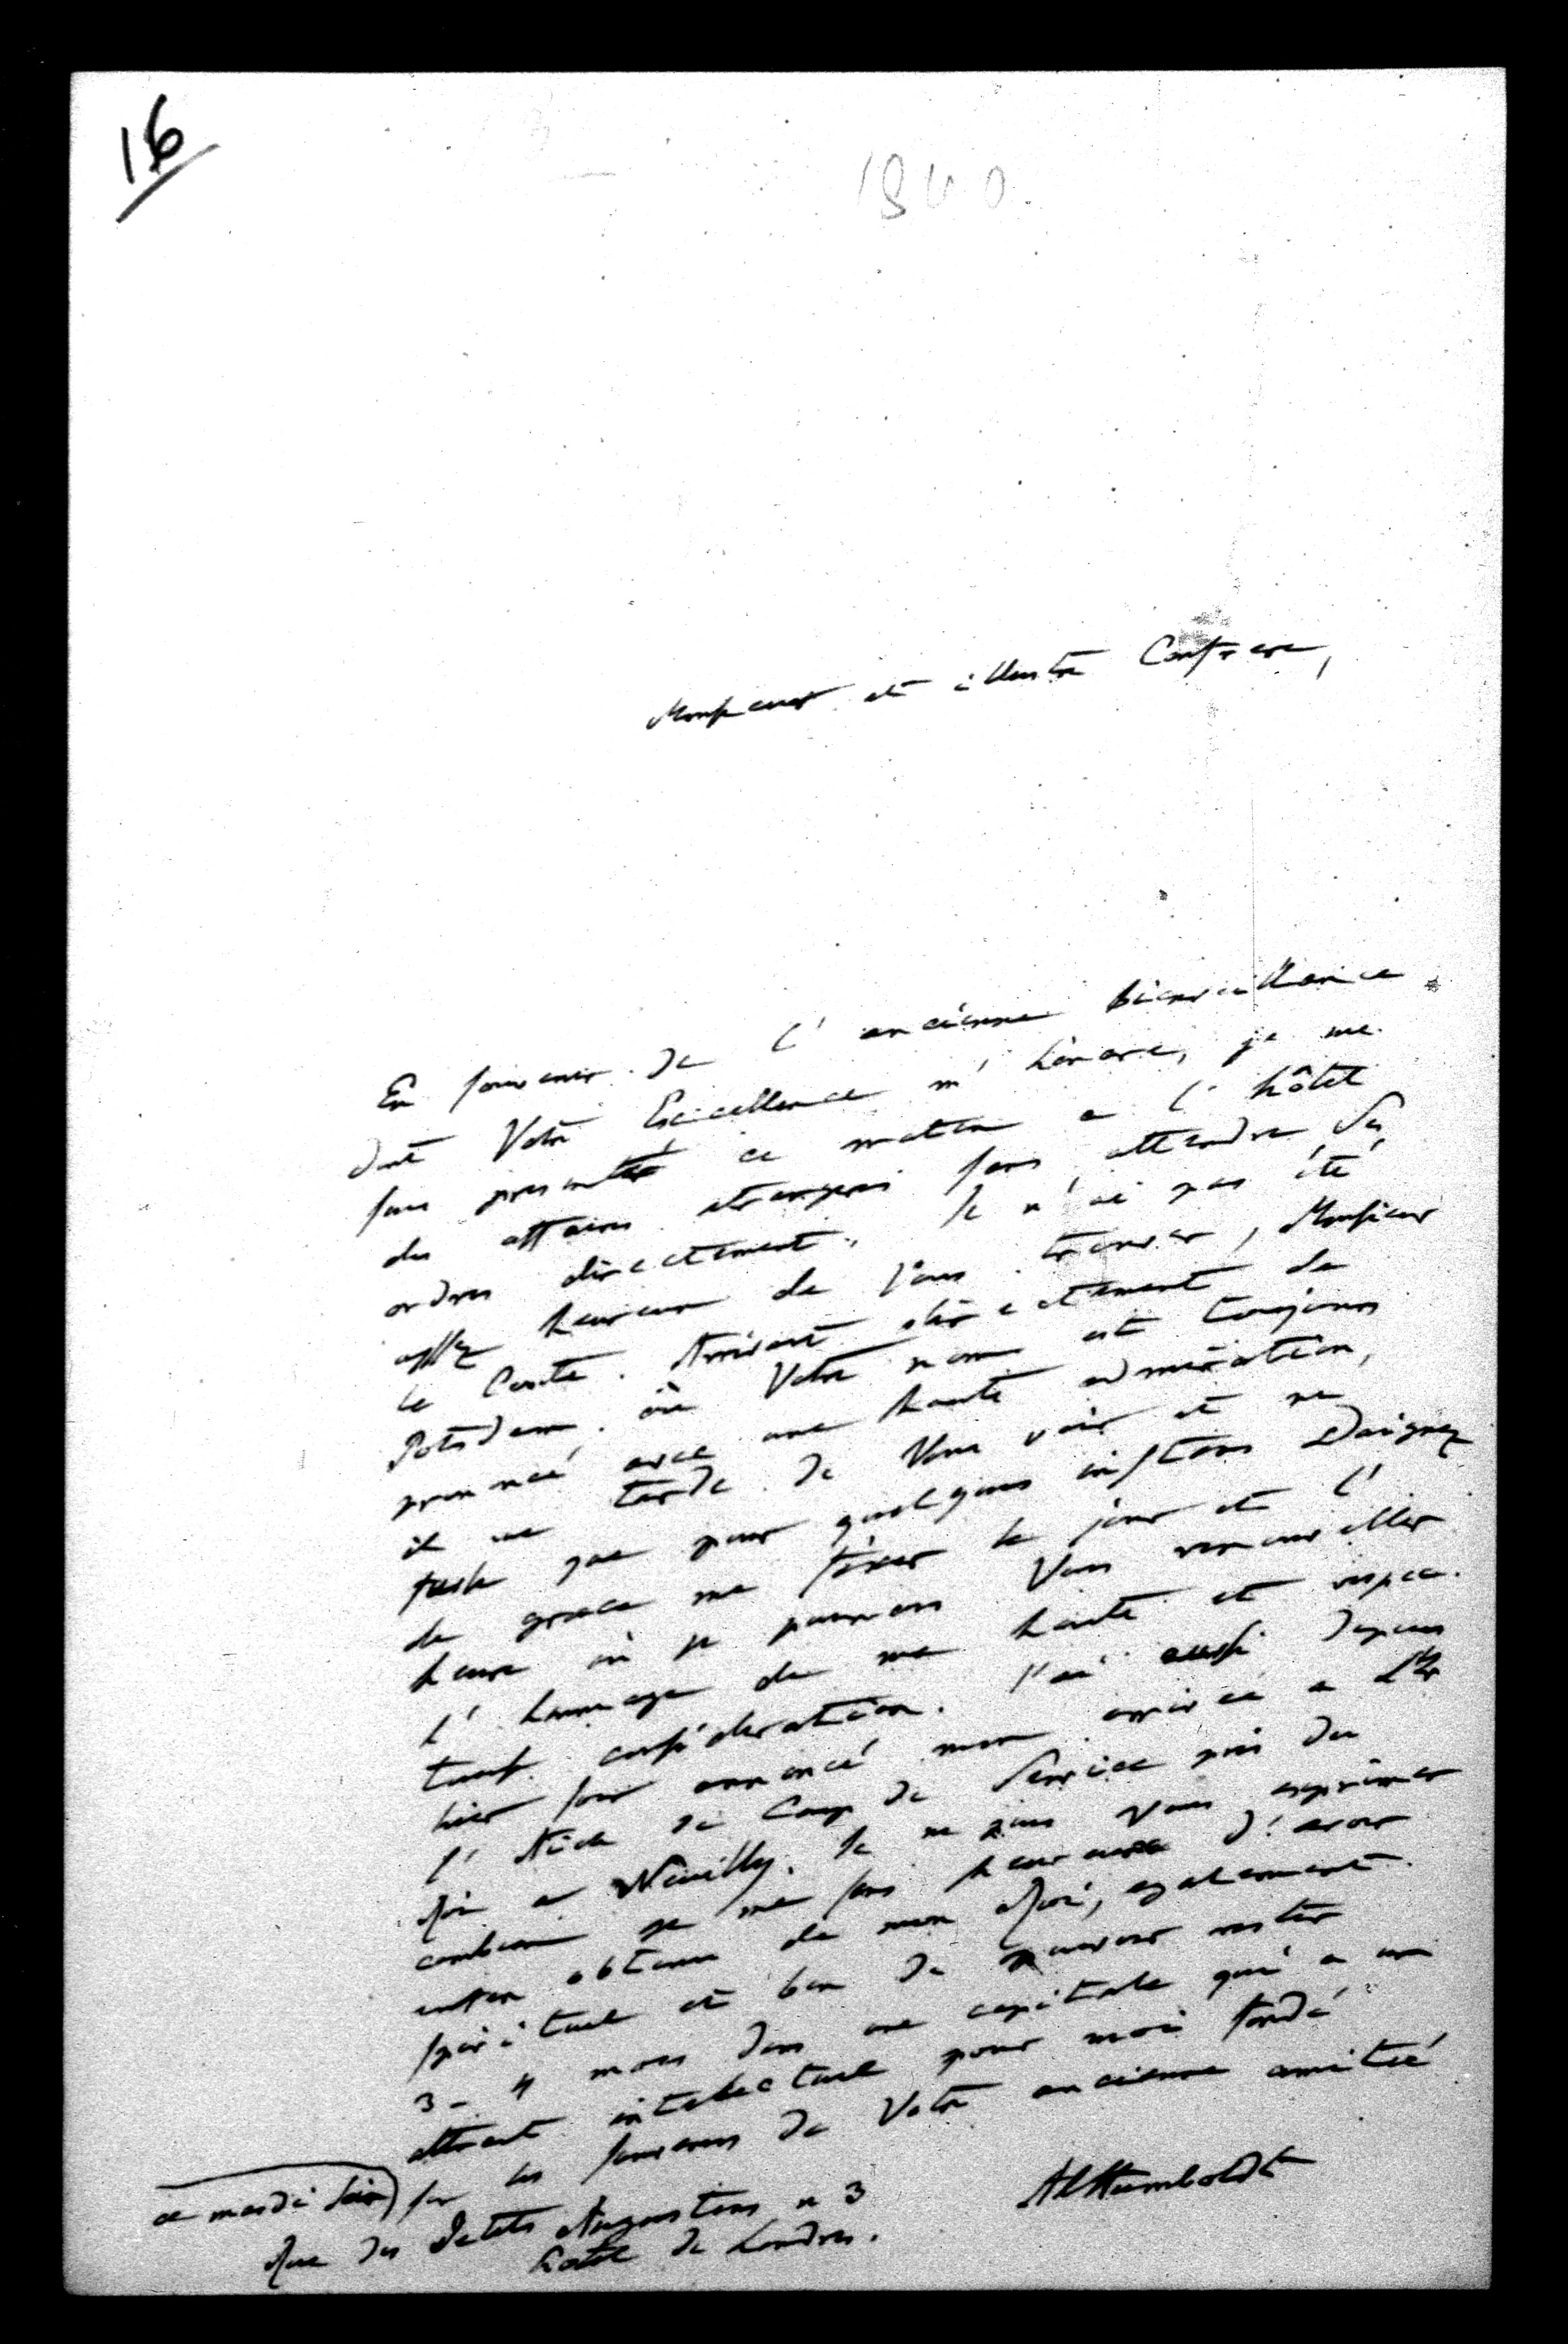 16
1840.
Monsieur et illustre Confrere,
En souvenir de l'ancienne bienveillance
dont Votre Excellence m'honore, je me
suis presenté ce matin a l'hôtel
des affaires etrangeres sans attendre Ses
ordres directement. Je n'ai pas été
assez heureux de Vous trouver, Monsieur
le Comte. Arrivant directement de
Potsdam, où Votre nom est toujours
prononcé avec une haute admiration,
il me tarde de Vous voir et ne
que pour quelques instans Daignez
de grace me fixer le jour et l'
heure où je pourrois Vous renouveller
l'hommage de ma haute et respec-
tueuse consideration. J'ai aussi depuis
hier soir annoncé mon arrivée a
l'Aide de Camp de Service près du
Roi a Neuilly. Je ne puis Vous exprimer
combien je me sens heureux d'avoir
enfin obtenu de mon Roi, egalement
spirituel et bon de pouvoir rester
3-4 mois dans une capitale qui a un
attrait intellectuel pour moi fondé
sur les souvenirs de Votre ancienne amitié
AlHumboldt
ce mardi soir
Rue des Petits Augustins n 3
hotel de Londres.